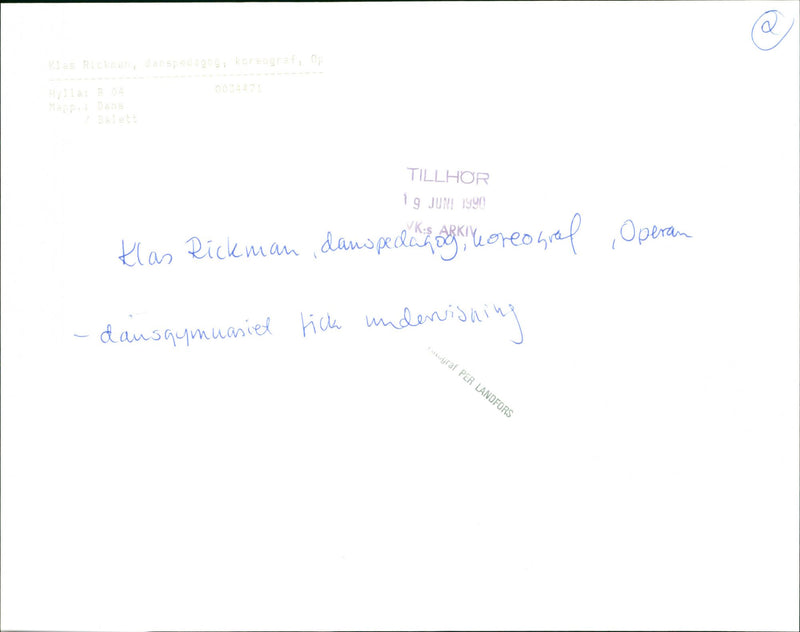 Q
Klas Rickman, danspedagog, koreograf, Op
Hylla: B 04 0024471
Mapp.: Dans
/ Balett
TILLHÖR
19 JUNI 1990
VK:s ARKIV
Klas Rickman, danspedagog, koreograf, Operan
- dansgymnasiet fick undervisning
Fotograf PER LANDFORS